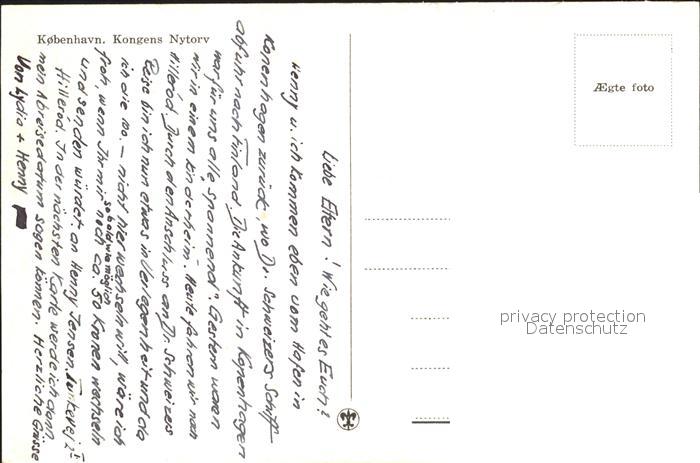 København. Kongens Nytorv
Ægte foto
Liebe Eltern! Wie geht es Euch?
Henny u. ich kommen eben vom Hafen in
Kopenhagen zurück, wo Dr. Schweizers Schiff
abfuhr nach Finland. Die Ankunft in Kopenhagen
war für uns alle "spannend". Gestern waren
wir in einem Kinderheim. Heute fahren wir nach
Hilleröd. Durch den Anschluss an Dr. Schweizes
Reise bin ich nun etwas in Verlegenheit und da
ich die 100.- nicht hier wechseln will, wäre ich
froh, wenn Ihr mir noch ca. 50 Kronen wechseln
sobald wie möglich
und senden würdet an Henny Jensen.
Hilleröd. In der nächsten Karte werde ich dann
mein Abreisedatum sagen können. Herzliche Grüsse
Von Lydia + Henny
privacy protection
Datenschutz